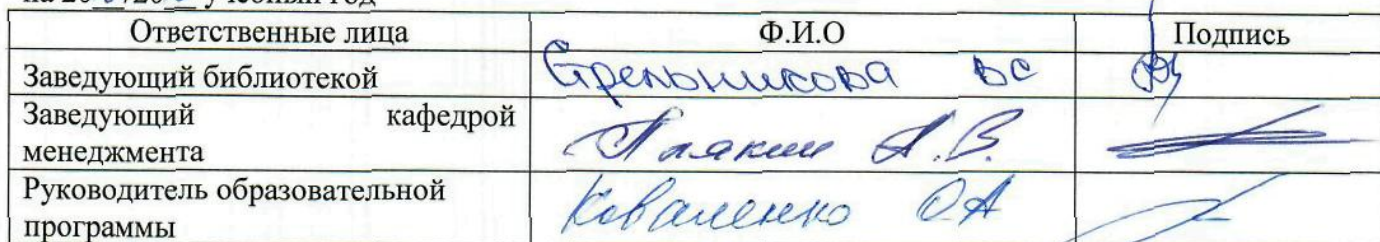 учебный год
Ответственные лица Ф.И.О Подпись
Заведующий библиотекой Стрельникова ВС
Заведующий кафедрой
менеджмента А.В.
Руководитель образовательной Коваленко ОА
программы